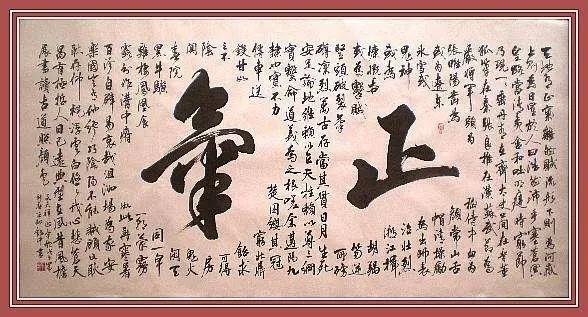 正氣
天地有正氣雜然賦流形下則為河嶽
上則為日星於人曰浩然沛乎塞蒼冥
皇路當清夷含和吐明庭時窮節
乃現一一垂丹青在齊太史簡在晉董
狐筆在秦張良椎在漢蘇武節為
嚴將軍頭為嵇侍中血為
張睢陽齒為顏常山舌
或為遼東帽清操勵
冰雪或為出師表
鬼神泣壯烈
或為渡江楫
慷慨吞胡羯
或為擊賊笏逆
豎頭破裂是所磅
礴凜烈萬古存當其貫日月生死
安足論地維賴以立天柱賴以尊三綱
實繫命道義為之根嗟余遘陽九
隸也實不力楚囚纓其冠
傳車送窮北鼎
鑊甘如飴求
之不可得
陰房
闃鬼火
春院閟天
黑牛驥同一皁
雞棲鳳凰食一朝蒙霧
露分作溝中瘠如此再寒暑
百沴自辟易哀哉沮洳場為我安
樂國豈有他繆巧陰陽不能賊顧此耿
耿存仰視浮雲白悠悠我心悲蒼天
曷有極哲人日已遠典型在夙昔風檐
展書讀古道照顏色